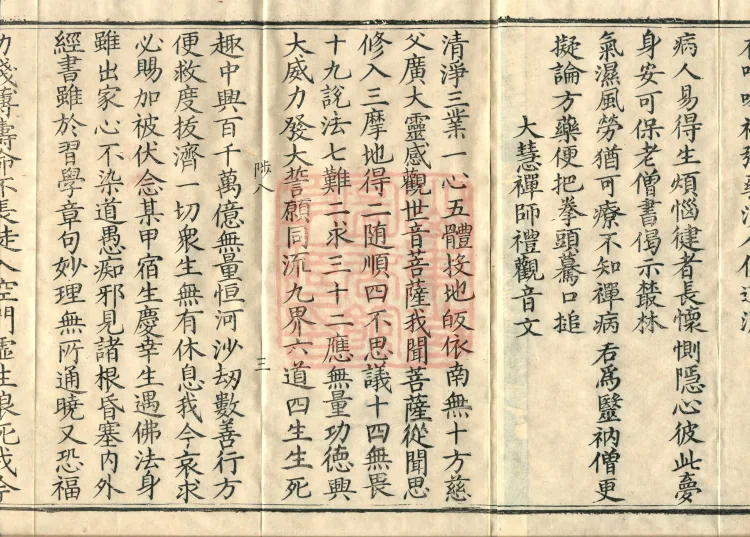 病人易得生煩惱健者長懷惻隱心彼此夢
身安可保老僧書偈示叢林
氣濕風勞猶可療不知禪病若爲毉衲僧更
擬論方藥便把拳頭驀口搥
大慧禪師禮觀音文
清淨三業一心五體投地皈依南無十方慈
父廣大靈感觀世音菩薩我聞菩薩從聞思
修入三摩地得二随順四不思議十四無畏
十九說法七難二求三十二應無量功德興
大威力發大誓願同流九界六道四生生死
陟八 三
趣中興百千萬億無量恒河沙劫數善行方
便救度拔濟一切衆生無有休息我今哀求
必賜加被伏念某甲宿生慶幸生遇佛法身
雖出家心不染道愚痴邪見諸根昏塞内外
經書雖於習學章句妙理無所通曉又恐福
力淺薄壽命不長徒入空門虛生浪死我今